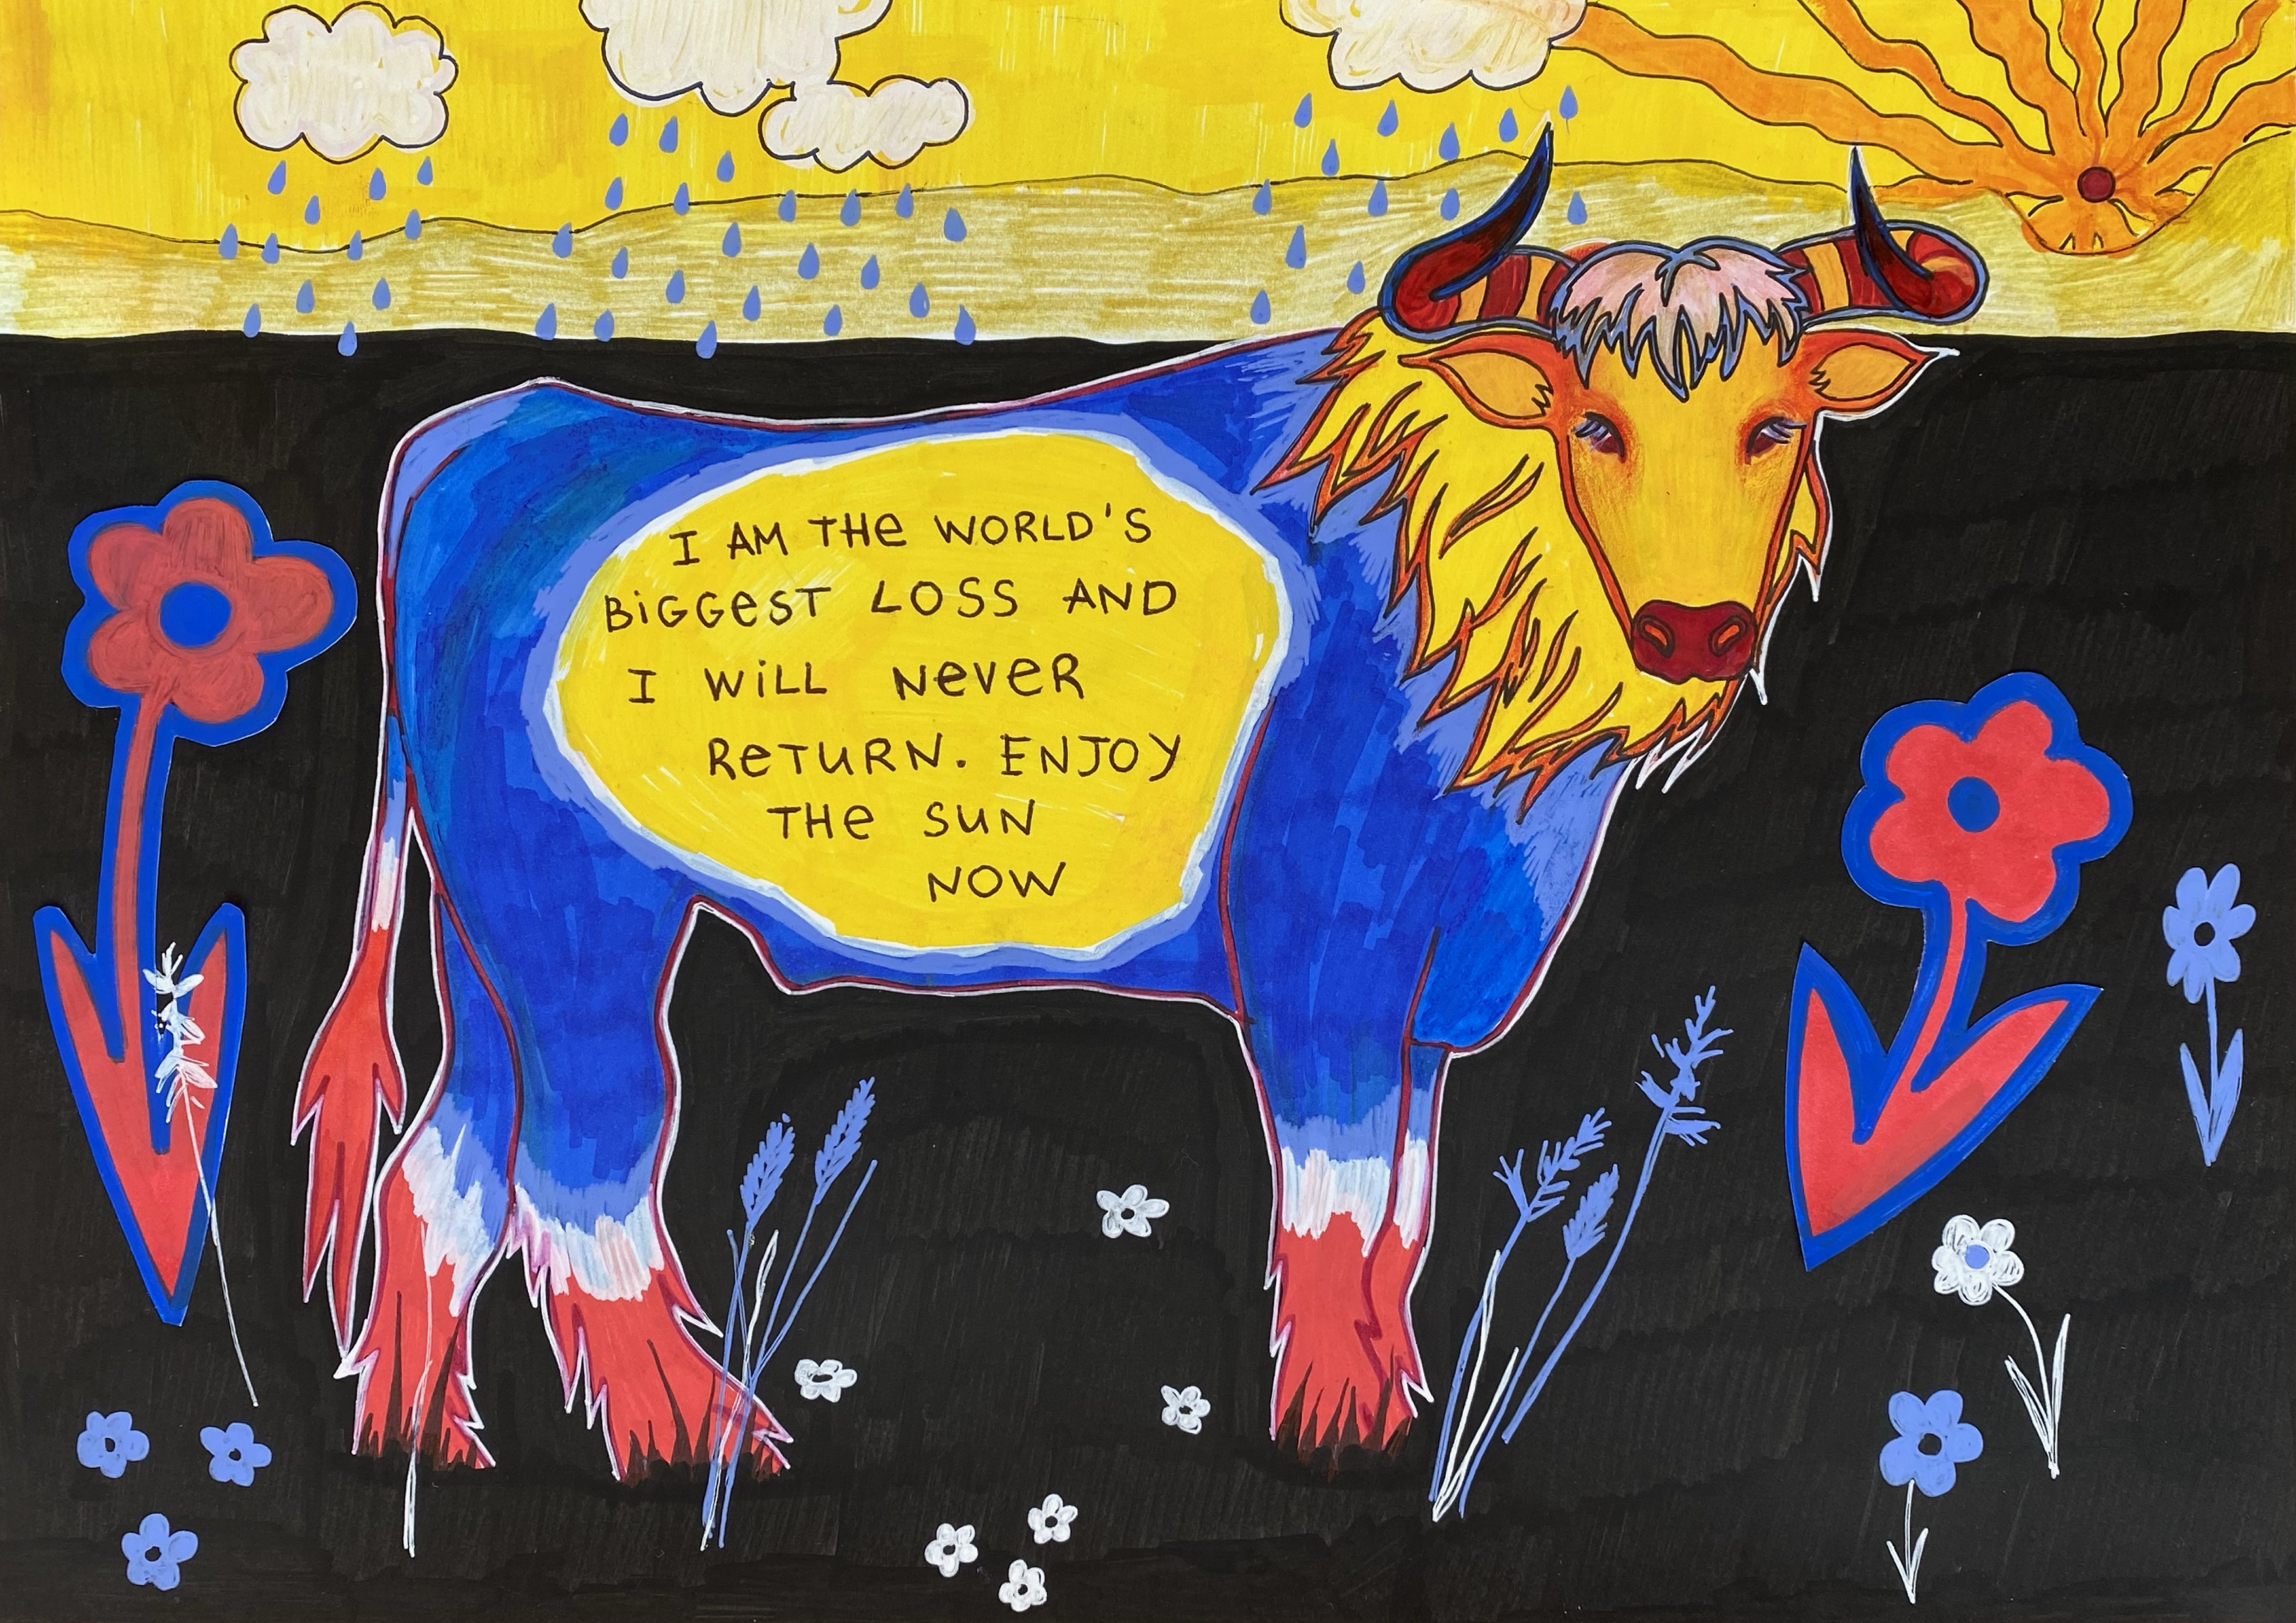 I AM THE WORLD'S
BIGGEST LOSS AND
I WILL NEVER
RETURN. ENJOY
THE SUN
NOW